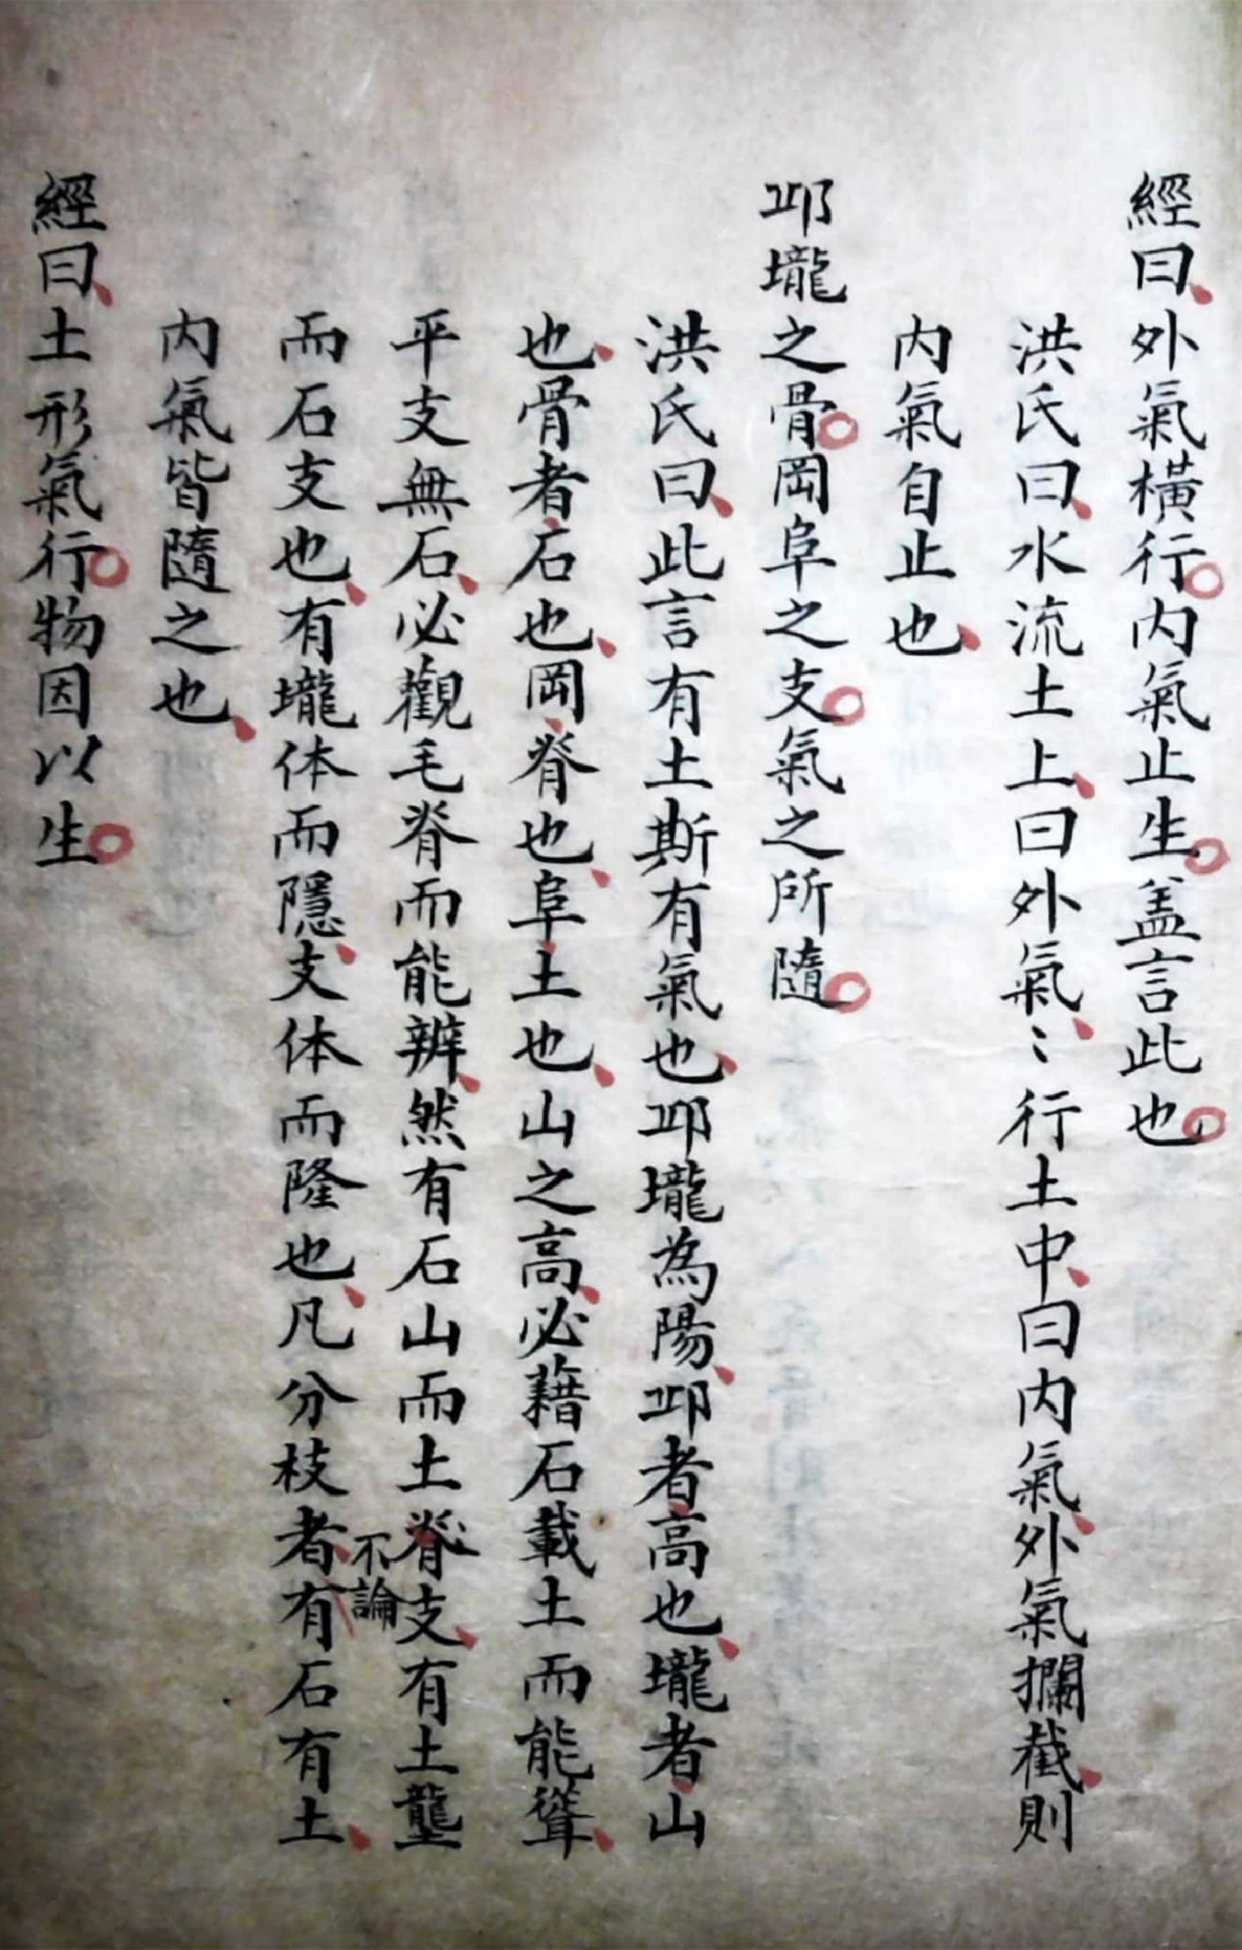 經曰外氣橫行内氣止生盖言此也
洪氏曰水流土上曰外氣〻行土中曰内氣外氣攔截則
内氣自止也
邱壠之骨岡阜之支氣之所隨
洪氏曰此言有土斯有氣也邱壠為陽邱者高也壠者山
也骨者石也岡脊也阜土也山之高必藉石載土而能聳
平支無石必觀毛脊而能辨然有石山而土脊支有土壟
而石支也有壠体而隱支体而隆也凡分枝者不論有石有土
内氣皆隨之也
經曰土形氣行物因以生